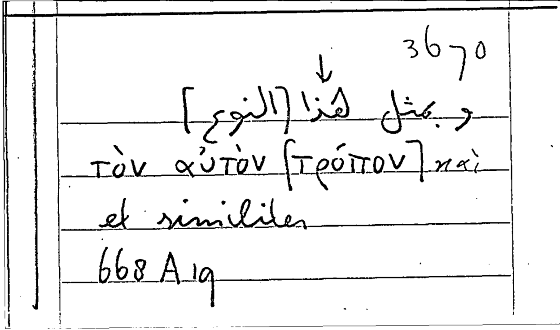 3670
و بمثل هذا [النوع]
τὸν αὐτὸν [τρόπον] καὶ
et similiter
668 A 19